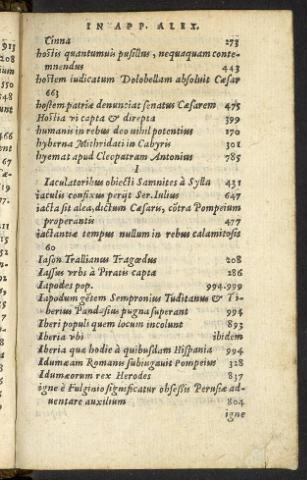 IN APP. ALEX.
Cinna 273
hostis quantumuis pusillus, nequaquam conte-
mnendus 443
hostem iudicatum Dolobellam absoluit Cæsar
663
hostem patriæ denunciat senatus Cæsarem 475
Hostia vi capta & direpta 399
humanis in rebus deo nihil potentius 170
hyberna Mithridati in Cabyris 301
hyemat apud Cleopatram Antonius 785
I
Iaculatoribus obiecti Samnites à Sylla 431
iaculis confixus perijt Ser. Iulius 647
iacta sit alea, dictum Cæsaris, cõtra Pompeium
properantis 477
iactantiæ tempus nullum in rebus calamitosis
60
Iason Trallianus Tragœdus 208
Iassus vrbs à Piratis capta 286
Iapodes pop. 994.999
Iapodum gẽtem Sempronius Tuditanus & Ti-
berius Pandusius pugna superant 994
Iberi populi quem locum incolunt 893
Iberia vbi ibidem
Iberia quæ hodie à quibusdam Hispania 994
Idumæam Romanis subiugauit Pompeius 328
Idumæorum rex Herodes 837
igne è Fulginio significatur obsessis Perusiæ ad-
uentare auxilium 804
igne
913
208
550
548
466
67